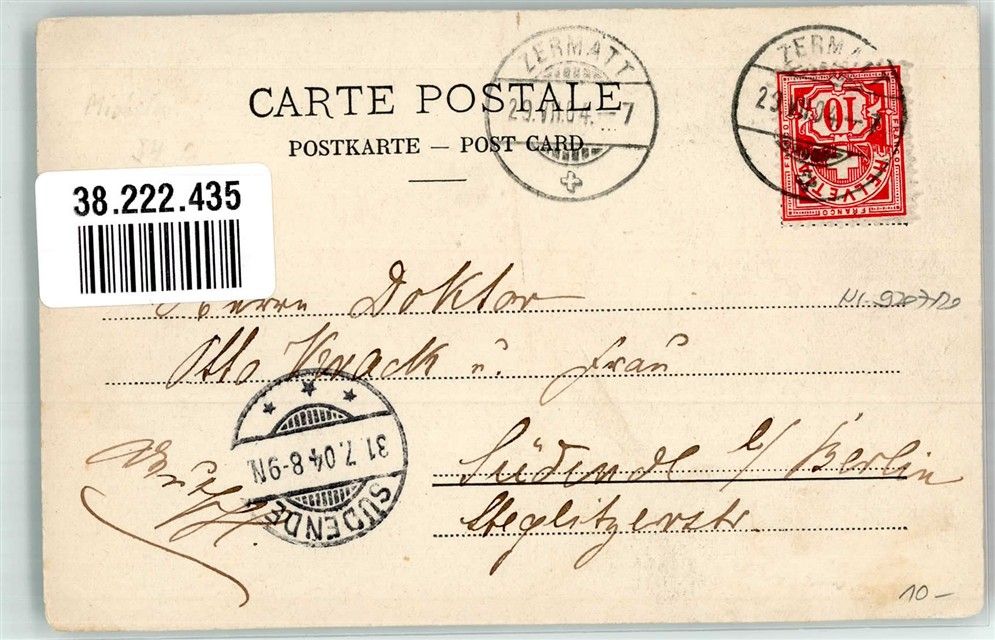 ZERMATT
29.VII.04.–7
ZERMATT
29.VII.04.–7
CARTE POSTALE
POSTKARTE – POST CARD
10
FRANCO
HELVETIA
FRANCO
38.222.435
Herrn Doktor
Otto Krack u. Frau
Südende b/ Berlin
Steglitzerstr.
31.7.04 8-9N.
SÜDENDE
10–